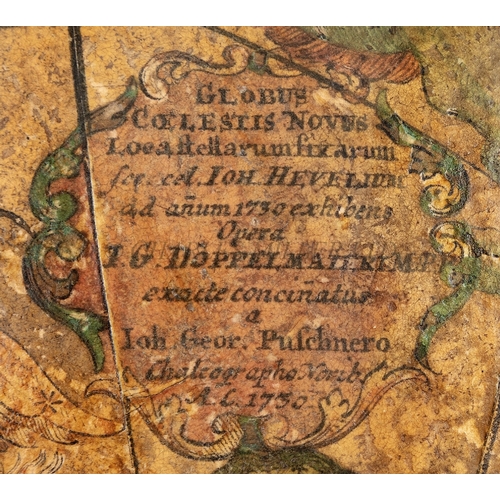 GLOBUS
CŒLESTIS NOVUS
Loca stellarum fixarum
sec. cel. IOH. HEVELIUM
ad añum 1730 exhibens
Opera
I. G. DOPPELMAIERI M.P.P.
exacte conciñatus
a
Ioh. Geor. Puschnero
Chalcographo Norib.
A. C. 1730